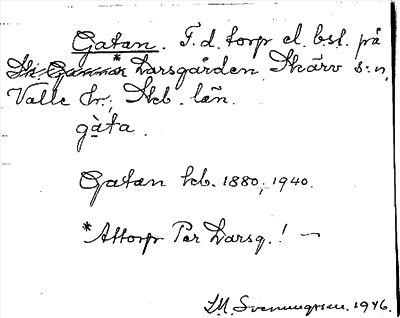 Gatan. F.d. torp el. bst. på
St. Gamm * Larsgården, Skärv s:n,
Valle hr; Skb. län.
gàta.
Gatan hcb. 1880; 1940.
*Attorp Per Larsg.! —
Svenungsson. 1946.